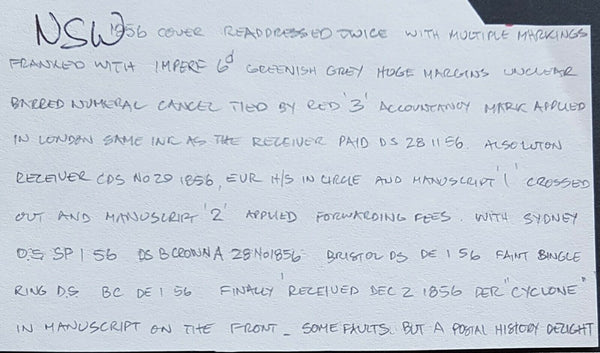 NSW 1856 COVER READDRESSED TWICE WITH MULTIPLE MARKINGS
FRANKED WITH IMPERF 6d GREENISH GREY HUGE MARGINS UNCLEAR
BARRED NUMERAL CANCEL TIED BY RED '3' ACCOUNTANCY MARK APPLIED
IN LONDON SAME INK AS THE RECEIVER PAID DS 28 11 56. ALSO LUTON
RECEIVER CDS NO 29 1856, EUR H/S IN CIRCLE AND MANUSCRIPT '1' CROSSED
OUT AND MANUSCRIPT '2' APPLIED FORWARDING FEES. WITH SYDNEY
D.S SP 1 56 DS B CROWN A 28 NO 1856 BRISTOL DS DE 1 56 FAINT BINGLE
RING D.S BC DE 1 56 FINALLY RECEIVED DEC 2 1856 PER "CYCLONE"
IN MANUSCRIPT ON THE FRONT - SOME FAULTS. BUT A POSTAL HISTORY DELIGHT